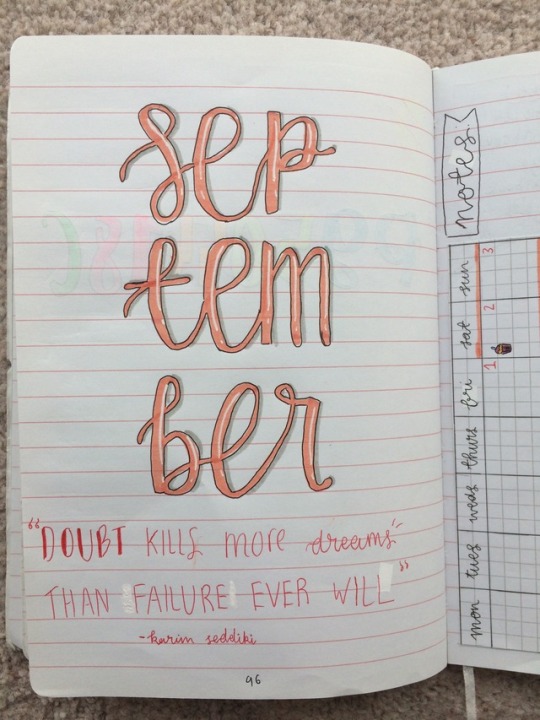 sep
tem
ber
"DOUBT KILLS more dreams"
THAN FAILURE EVER WILL"
-karim seddiki
96
notes:
mon tues weds thurs fri sat sun
1 2 3